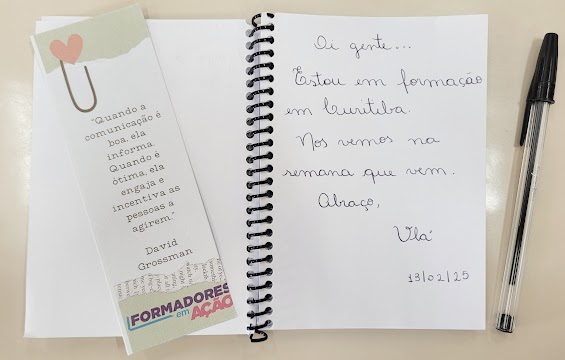 "Quando a
comunicação é
boa, ela
informa.
Quando é
ótima, ela
engaja e
incentiva as
pessoas a
agirem."
David
Grossman
FORMADORES
em AÇÃO
Oi gente...
Estou em formação
em Curitiba.
Nos vemos na
semana que vem.
Abraço,
Vlá
13/02/25